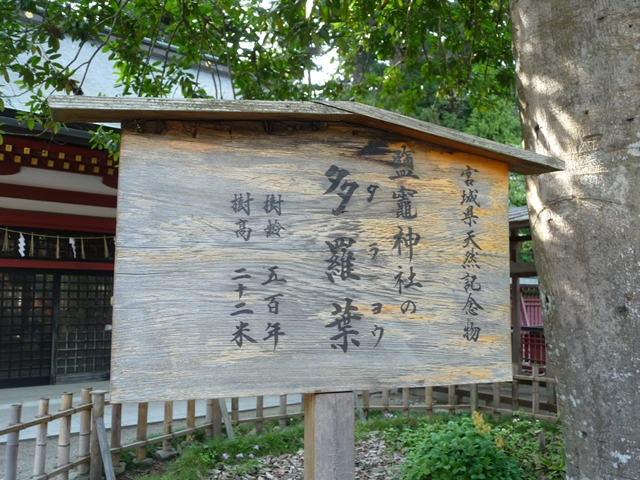 宮城県天然記念物
鹽竈神社の
タラヨウ
多羅葉
樹齢 五百年
樹高 二十二米